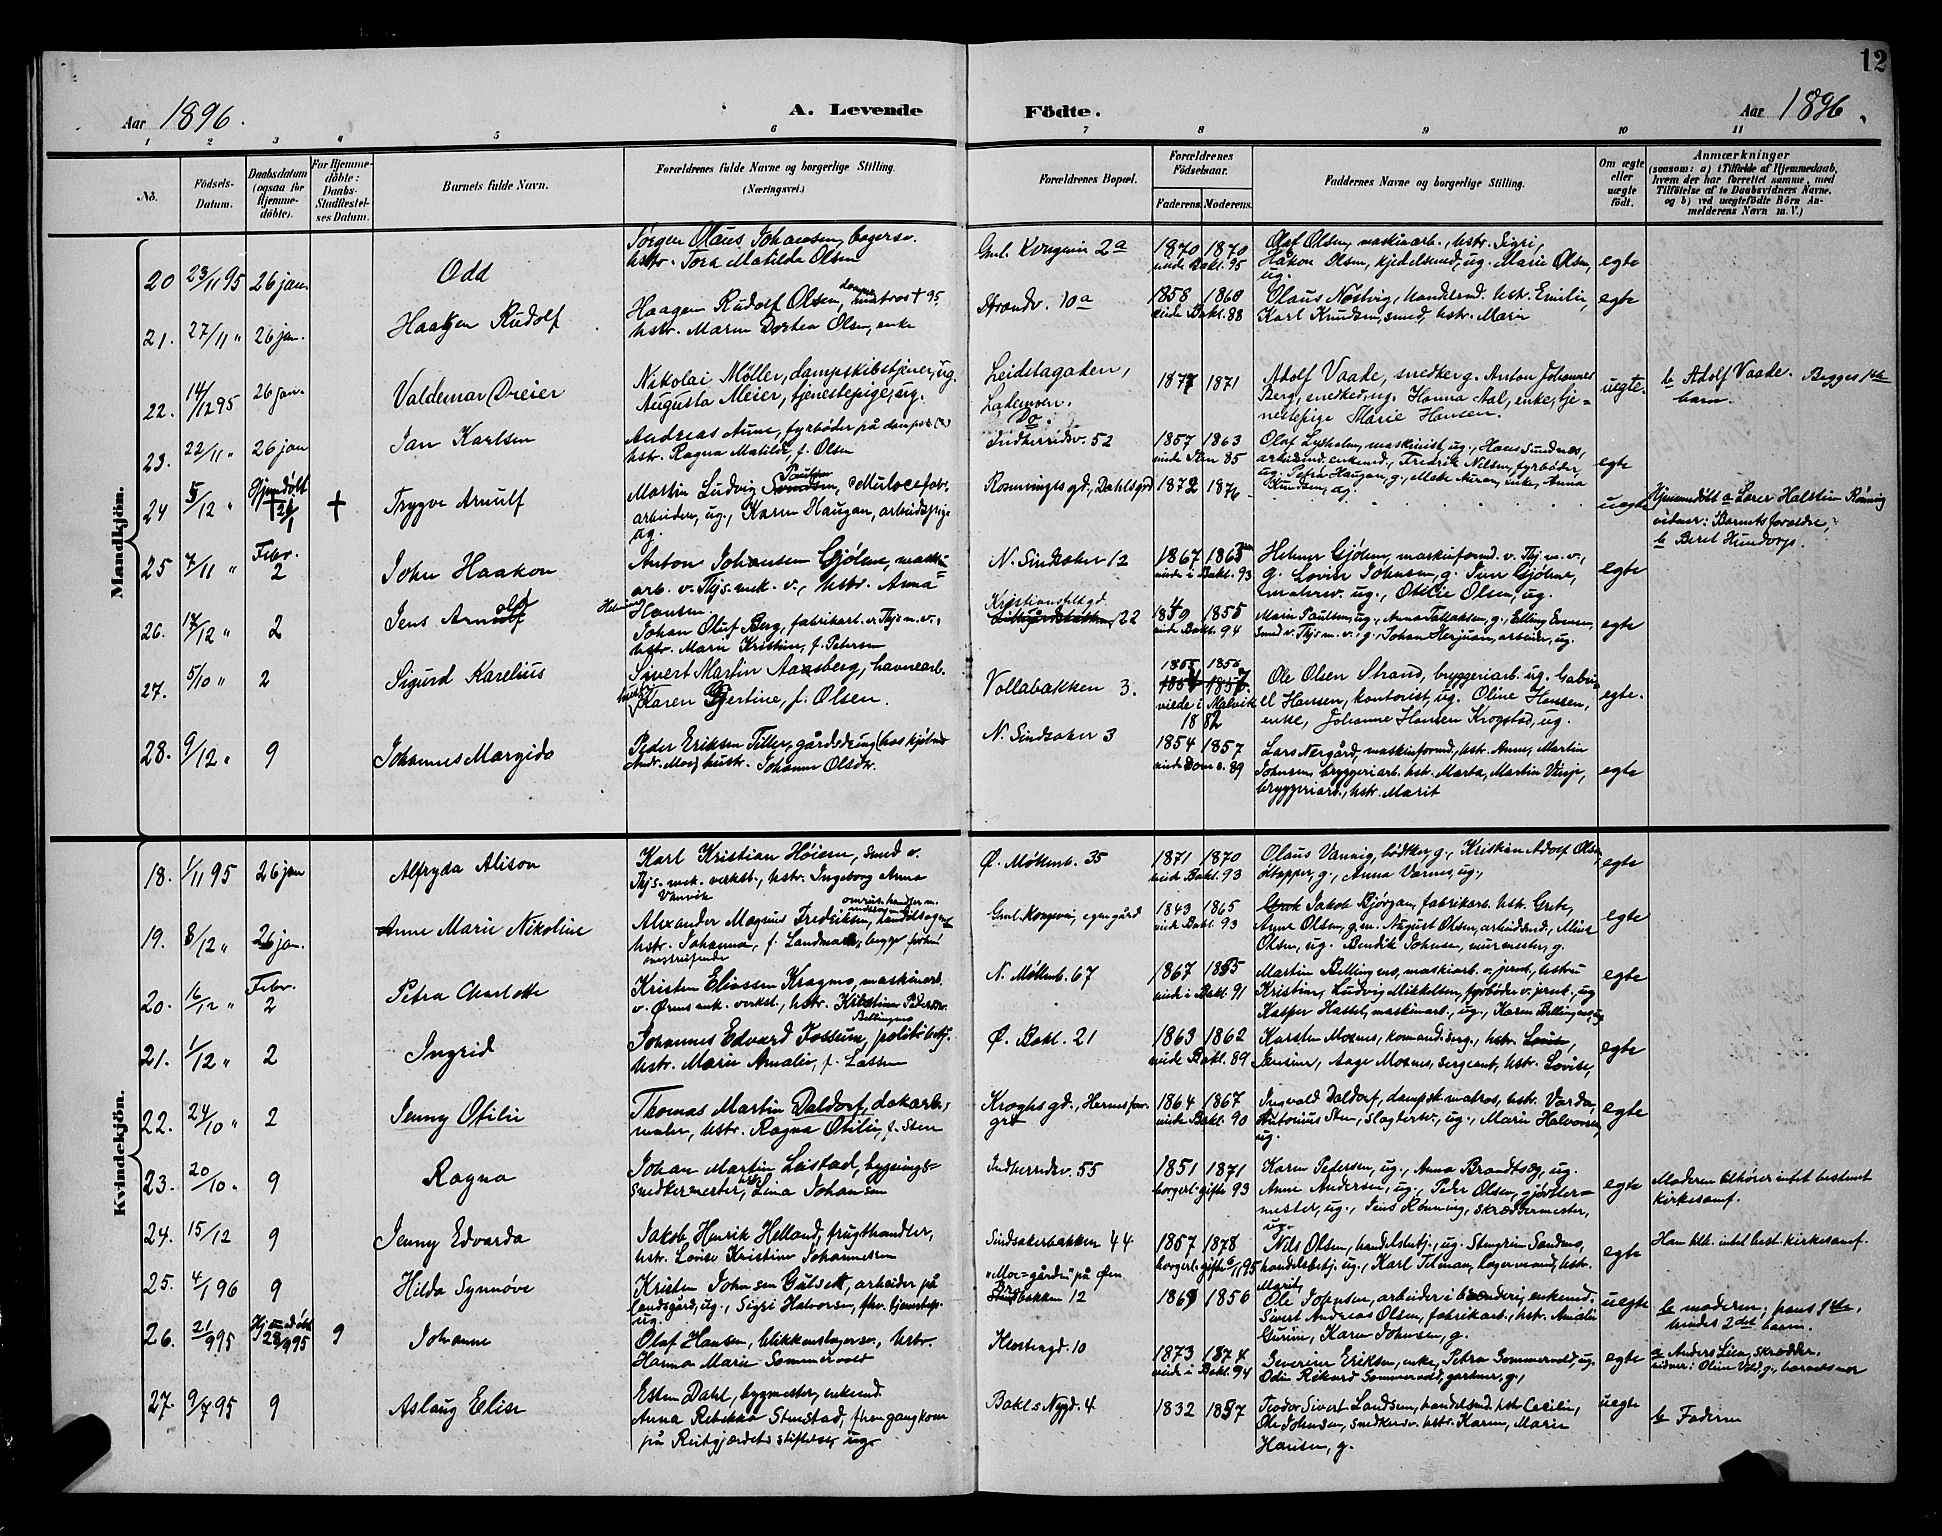 12
Aar 1896.
A. Levende
Födte.
Aar 1896.
1 2 3 4 5 6 7 8 9 10 11
No.
Födsels-
Datum.
Daabsdatum
(ogsaa for
Hjemme-
döbte).
For Hjemme-
döbte:
Daabs-
Stadfæstel-
ses Datum.
Barnets fulde Navn.
Forældrenes fulde Navne og borgerlige Stilling.
(Næringsvei.)
Forældrenes Bopæl.
Forældrenes
Födselsaar.
Faderens. Moderens.
Faddernes Navne og borgerlige Stilling.
Om ægte
eller
uægte
født.
Anmærkninger
(saasom: a) i Tilfælde af Hjemmedaab,
hvem der har forrettet samme, med
Tilföielse af to Daabsvidners Navne,
og b) ved uægtefödte Börn An-
melderens Navn m. V.)
Mandkjön.
20 23/11 95 26 jan. Odd
Jørgen Olaus Johansen, bagersv.
hstr. Tora Matilda Olsen
Gml. Kongevei 2a
1870 1870
viede Bakl. 95
Olaf Olsen, maskinarb., hstr. Sigri,
Håkon Olsen, kjedelsmed, ug. Marie Olsen,
ug.
egte
21. 27/11 " 26 jan. Haagen Rudolf
Haagen Rudolf Olsen, matros + 95
hstr. Maren Dortea Olsen, enke
Strandv. 10a
1858 1860
viede Bakl. 88
Olaus Nøstvig, handelsmd. hstr. Emilie,
Karl Knudsen, smed, hstr. Marie
egte
22. 14/12 95 26 jan. Valdemar Dreier
Nikolai Møller, dampskibstjener, ug.
Augusta Meier, tjenestepige, ug.
Ladejarlsgaden,
Do.
1871
Adolf Vaade, snedker g. Anton Johannes
Berg, snedker, ug. Hanna Aal, enke, tje-
nestepige Marie Hansen.
uegte.
b Adolf Vaade. Begges 1ste
barn.
23. 22/11 " 26 jan Jan Karlsen
Andreas Aune, fyrbøder på dampsk.
hstr. Ragna Matilde, f. Olsen
Indherridsv. 52
1857 1863
85
Olaf Lysholm, maskinist ug., Hans Sundnes,
arbeidsmd. enkemd., Fredrik Nilsen, fyrbøder,
ug. Petra Haugan, g., enke, Anna
Knudsen, ug.
egte
24 5/12 " Hjemdøbt + Trygve Arnulf
Martin Ludvig Svendsen, Paulsen
arbeider, ug., Karen Haugan, arbeidspige
ug.
Rønningsgd., Dahlsgrd
1872 1876
uegte
Hjemmedøbt a Lærer Halstein Rønnig
vidner: Barnets forældre,
b Beret Hundorp.
25 7/11 " Febr. 2 John Haakon
Anton Johansen Gjølme, maskin
arb. v. Thjs. mek. v., hstr. Anna
Hansen.
N. Sindsaker 12
1867 1865
viede i Bakl. 93
Helmer Gjølme, maskinformd. v. Thj m. v.,
g. Lovise Johnsen, g. Jens Gjølme,
malersv. ug., Otilie Olsen, ug.
egte
26. 12/12 " 2 Jens Arnold
Johan Oluf Berg, fabrikarb. v. Thjs m. v.,
hstr. Marie Kristine, f. Petersen
Kristiansfeltgd.
22
1855
viede Bakl. 94
Marie Paulsen, ug., Anna Tallaksen, g., Elling Evensen,
smed v. Thjs m. v., g., Johan Herjuan, arbeider, ug.
egte
27. 5/10 " 2 Sigurd Karelius
Sivert Martin Aasberg, havnearb.
hustr. Karen Gjertine, f. Olsen.
Vollabakken 3.
1855 1856
viede i Malvik
1882
Ole Olsen Strand, bryggeriarb. ug. Gabri-
el Hansen, kontorist, ug. Oline Hansen,
enke, Johanne Hansen Krogstad, ug.
egte.
28. 9/12 " 9 Johannes Margido
Peder Eriksen Tiller, gårdsdreng (hos kjøbmd.
Andr. Moe) hustr. Johanne Olsdtr.
N. Sindsaker 3
1854 1857
viede Dom. 89
Lars Nergård, maskinformd., hstr. Anne, Martin
Johnsen, bryggeriarb. hstr. Marta, Martin Vinje,
bryggeriarb., hstr. Marit
egte
Kvindekjön.
18. 1/11 95 26 jan Alfryda Alison
Karl Kristian Høiem, smed v.
Thjs. mek. verkst., hstr. Ingeborg Anna
Vanvik
Ø. Møllenb. 35
1871 1870
viede Bakl. 93
Olaus Vannig, bødker, g., Kristian Adolf Olsen
øltapper, g., Anna Værnes, ug.,
egte
19. 8/12 " 26 jan. Anne Marie Nikoline
Alexander Magnus Fredriksen, handelsagent
hstr. Johanna, f. Landmark, begge forhen
omstreifende
Gml. Kongevei, egen gård
1843 1865
viede Bakl. 93
Jakob Bjørgan, fabrikarb. hstr. Grete,
Anne Olsen, g.m. August Olsen, arbeidsmd., Mina
Olsen, ug. Bendik Johnsen, murmester, g.
egte
20. 16/12 " Febr. 2 Petra Charlotte
Kristen Eliassen Kragmo, maskinarb.
v. Ørens mek. verkst., hstr. Kristine Pedersdtr.
Bellingmo
N. Møllenb. 67
1867 1855
viede i Bakl. 91
Martin Bellingmo, maskinarb. v. jernb., hstru
Kristine, Ludvig Mikkelsen, fyrbøder v. jernb., ug
Kasper Hassel, maskinarb., ug., Karen Bellingmo, ug
egte
21. 1/12 " 2 Ingrid
Johannes Edvard Fossum, politibetj.
hstr. Marie Amalie, f. Lassen
Ø. Bakl. 21
1863 1862
viede Bakl. 89
Karsten Moxnes, komandersrg., hstr.
Jensine, Aage Moxnes, sergeant, hstr. Lovise,
egte
22. 24/10 " 2 Jenny Otilie
Thomas Martin Daldorf, dokarb.,
maler, hstr. Ragna Otilie, f. Sten
Kroghs gd.,
1864 1867
viede Bakl. 90
Ingvald Daldorf, dampsk. matros, hstr. Varda,
Antonius Sten, slagtersv., ug., Marie Halvorsen,
ug.
egte
23. 20/10 " 9 Ragna
Johan Martin Leistad, bygnings-
snedkermester, hstr. Lina Johansen
Indherredsv. 55
1851 1871
borgerl. gifte 93
Karen Petersen, ug., Anna Brandtsæg, ug.
Anne Andersen, ug., Peder Olsen, gjørtler-
mester, ug., Jens Rønning, skræddermester,
ug.
egte
Moderen tilhører intet bestemt
kirkesamf.
24. 15/12 9 Jenny Edvarda
Jakob Henrik Helland, frugthandler,
hstr. Lovise Kristine Johannessen
Sindsakerbakken 44
1857 1878
borgerl. gifte 95
Nils Olsen, handelsbetj., ug. Stengrim Sandmo,
handelsbetj. ug., Karl Tilman, lagermand, hstr.
Marit,
egte
Han tilh. intet best. kirkesamf.
25. 4/1 96 9 Hilda Synnøve
Kristen Johnsen Gulset, arbeider på
landsgård, ug., Sigri Halvorsen, fhv. tjenestep.
ug.
"Moe"-gården på Øen
Brobakken 12
1869 1856
Ole Johnsen, arbeider i brænderi, enkemd.
Sivert Andreas Olsen, fabrikarb., hstr. Amalie
Gurine, Karen Johnsen, g.
uegte
b moderen, hans 1ste,
hindes 2det barn.
26. 21/9 95 Hjemdøbt 28/9 95 9 Johanne
Olaf Hansen, blikkenslagersv., hstr.
Hanna Marie Sommervold
Klostergd. 10
1873 1874
viede i Bakl. 94
Severine Eriksen, enke, Petra Sommervold, ug.
Odin Rikard Sommervold, gartner, g.,
egte
a Anders Lien, skrædder.
vidner: Oline Vold, g., barnets mor
27. 9/7 95 9 Aslaug Elise
Esten Dahl, bygmester, enkemd.
Anna Rebekka Stenstad, før gangkone
på Reitgjærdets stiftelse, ug.
Bakl. Nygd. 4
1832 1857
Teodor Sivert Landsem, handelsmd. hstr. Cecilie,
Ole Johnsen, snedkersv. hstr. Karen, Marie
Hansen, g.
uegte
b Faderen